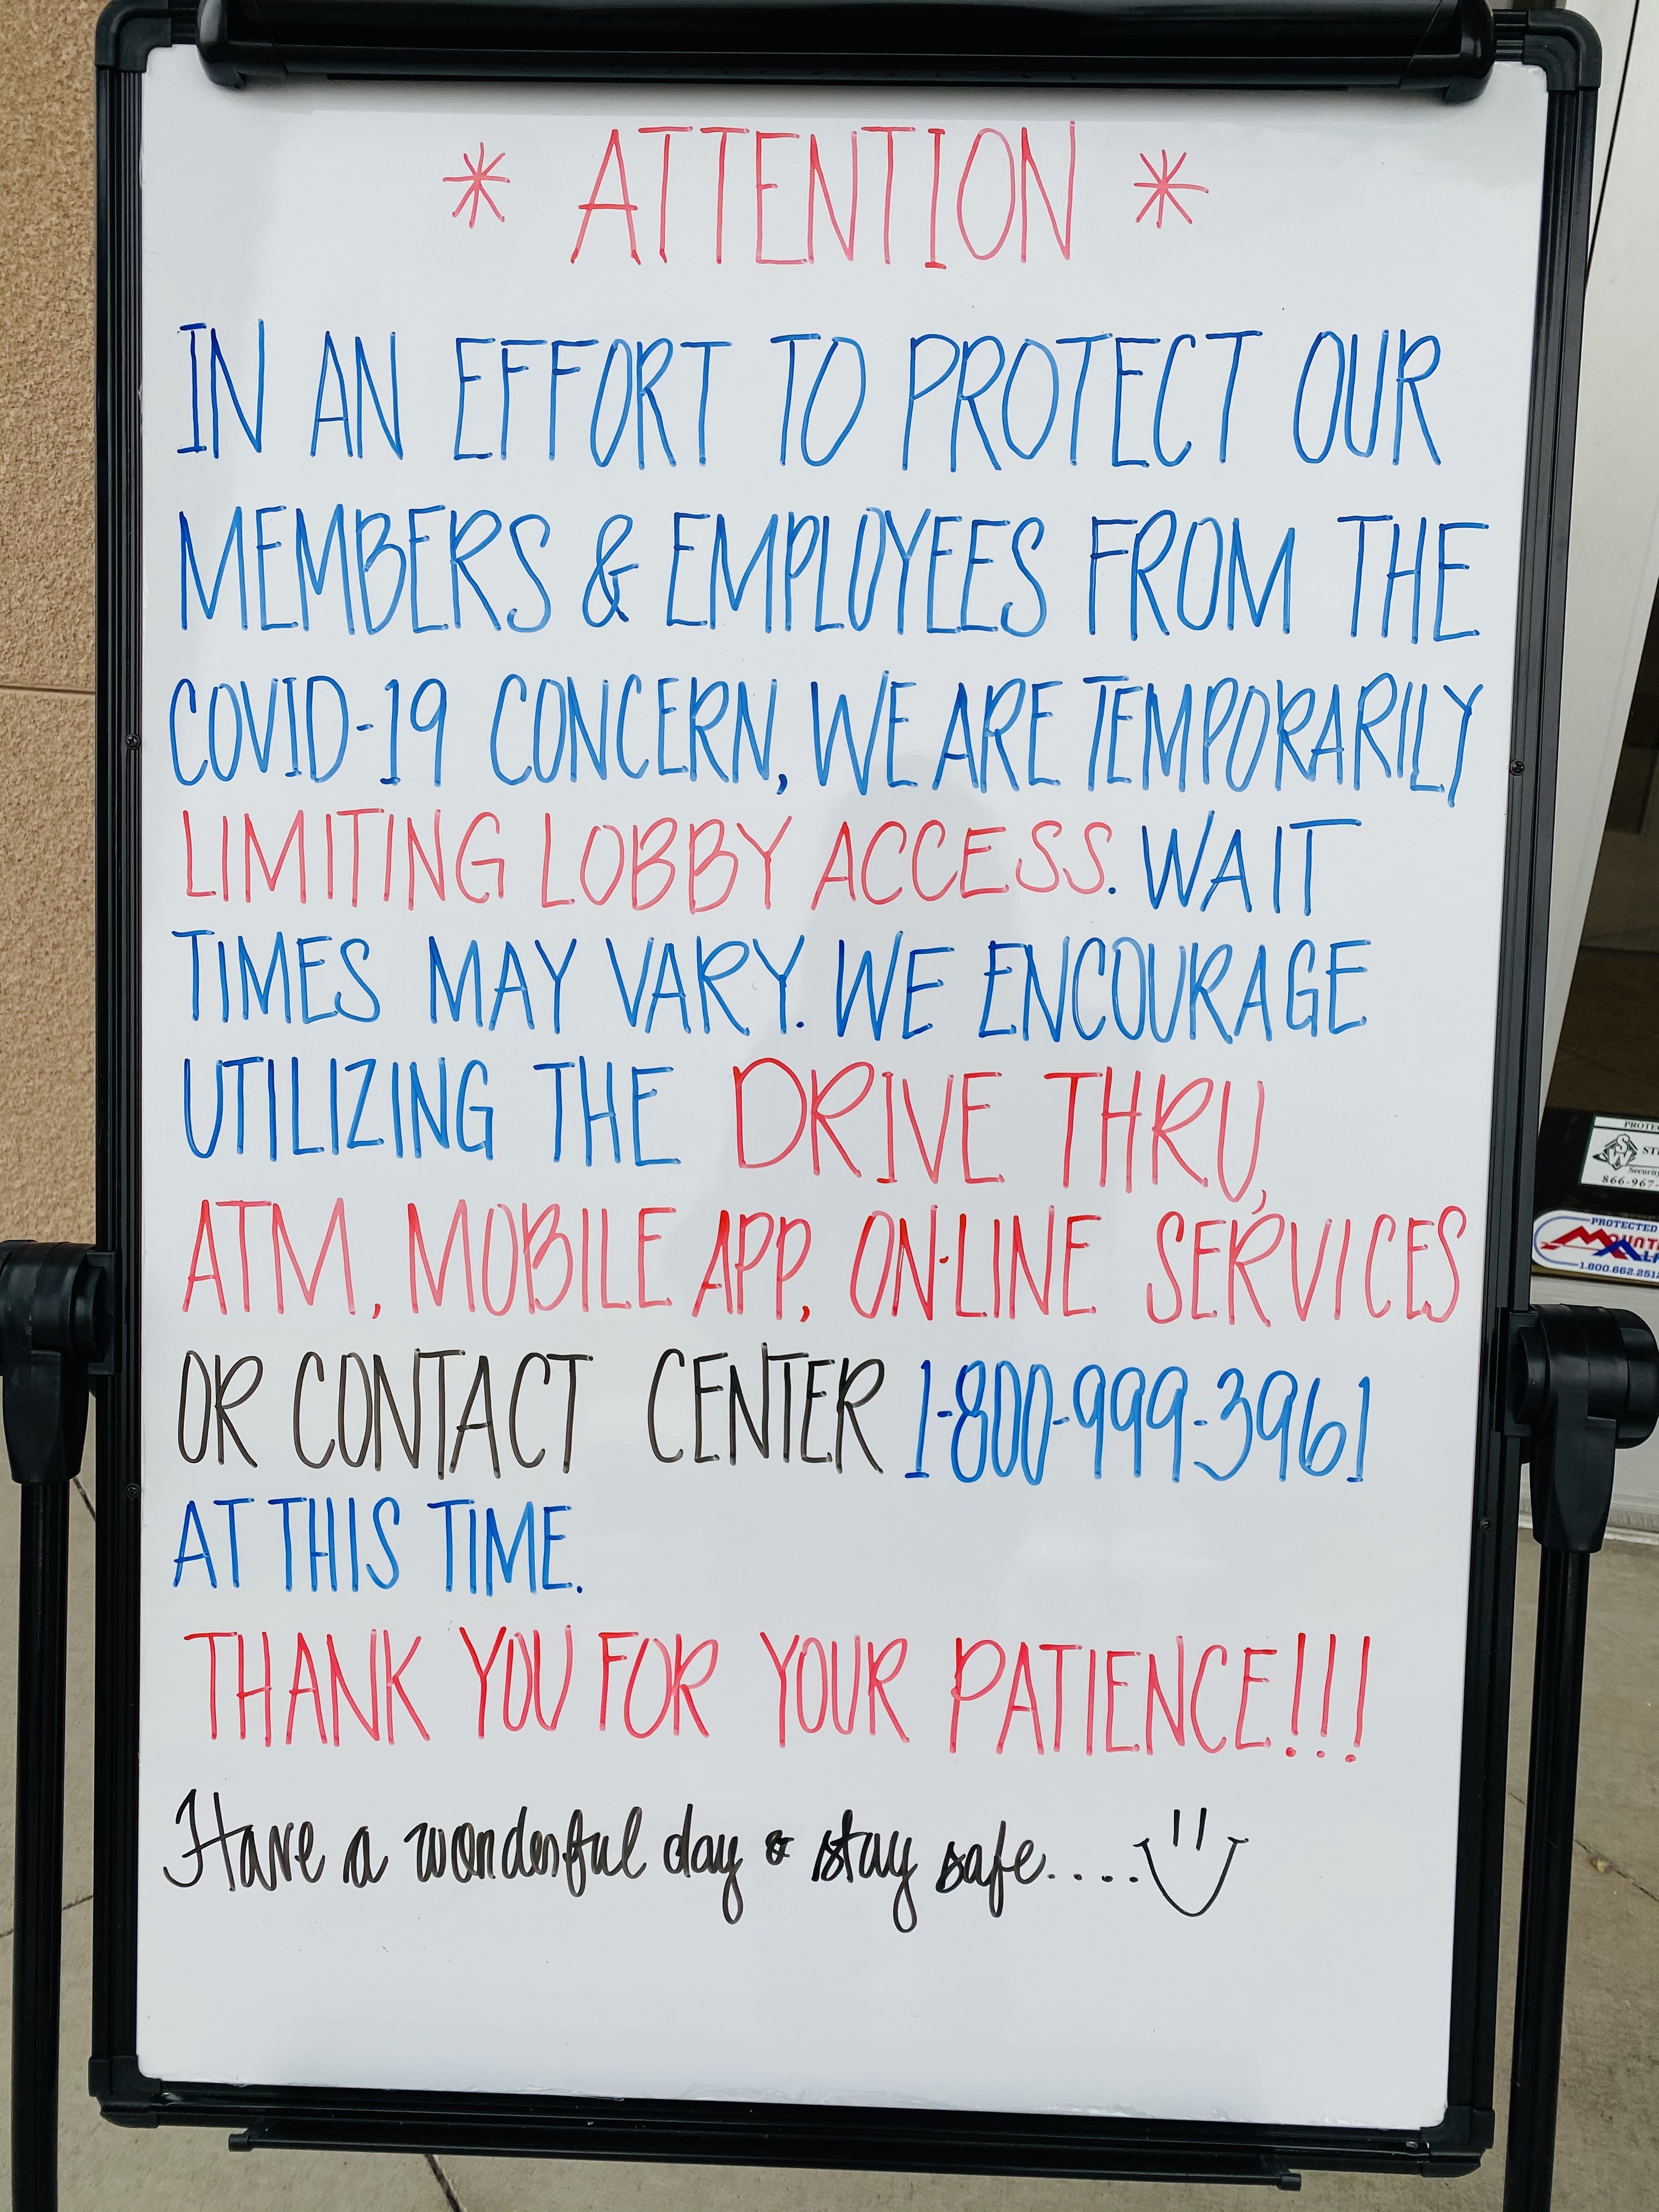 * ATTENTION *
IN AN EFFORT TO PROTECT OUR
MEMBERS & EMPLOYEES FROM THE
COVID-19 CONCERN, WE ARE TEMPORARILY
LIMITING LOBBY ACCESS. WAIT
TIMES MAY VARY. WE ENCOURAGE
UTILIZING THE DRIVE THRU,
ATM, MOBILE APP, ON-LINE SERVICES
OR CONTACT CENTER 1-800-999-3961
AT THIS TIME.
THANK YOU FOR YOUR PATIENCE!!!
Have a wonderful day & stay safe....
SW
Security
866-967-
PROTECTED
1.800.662.251